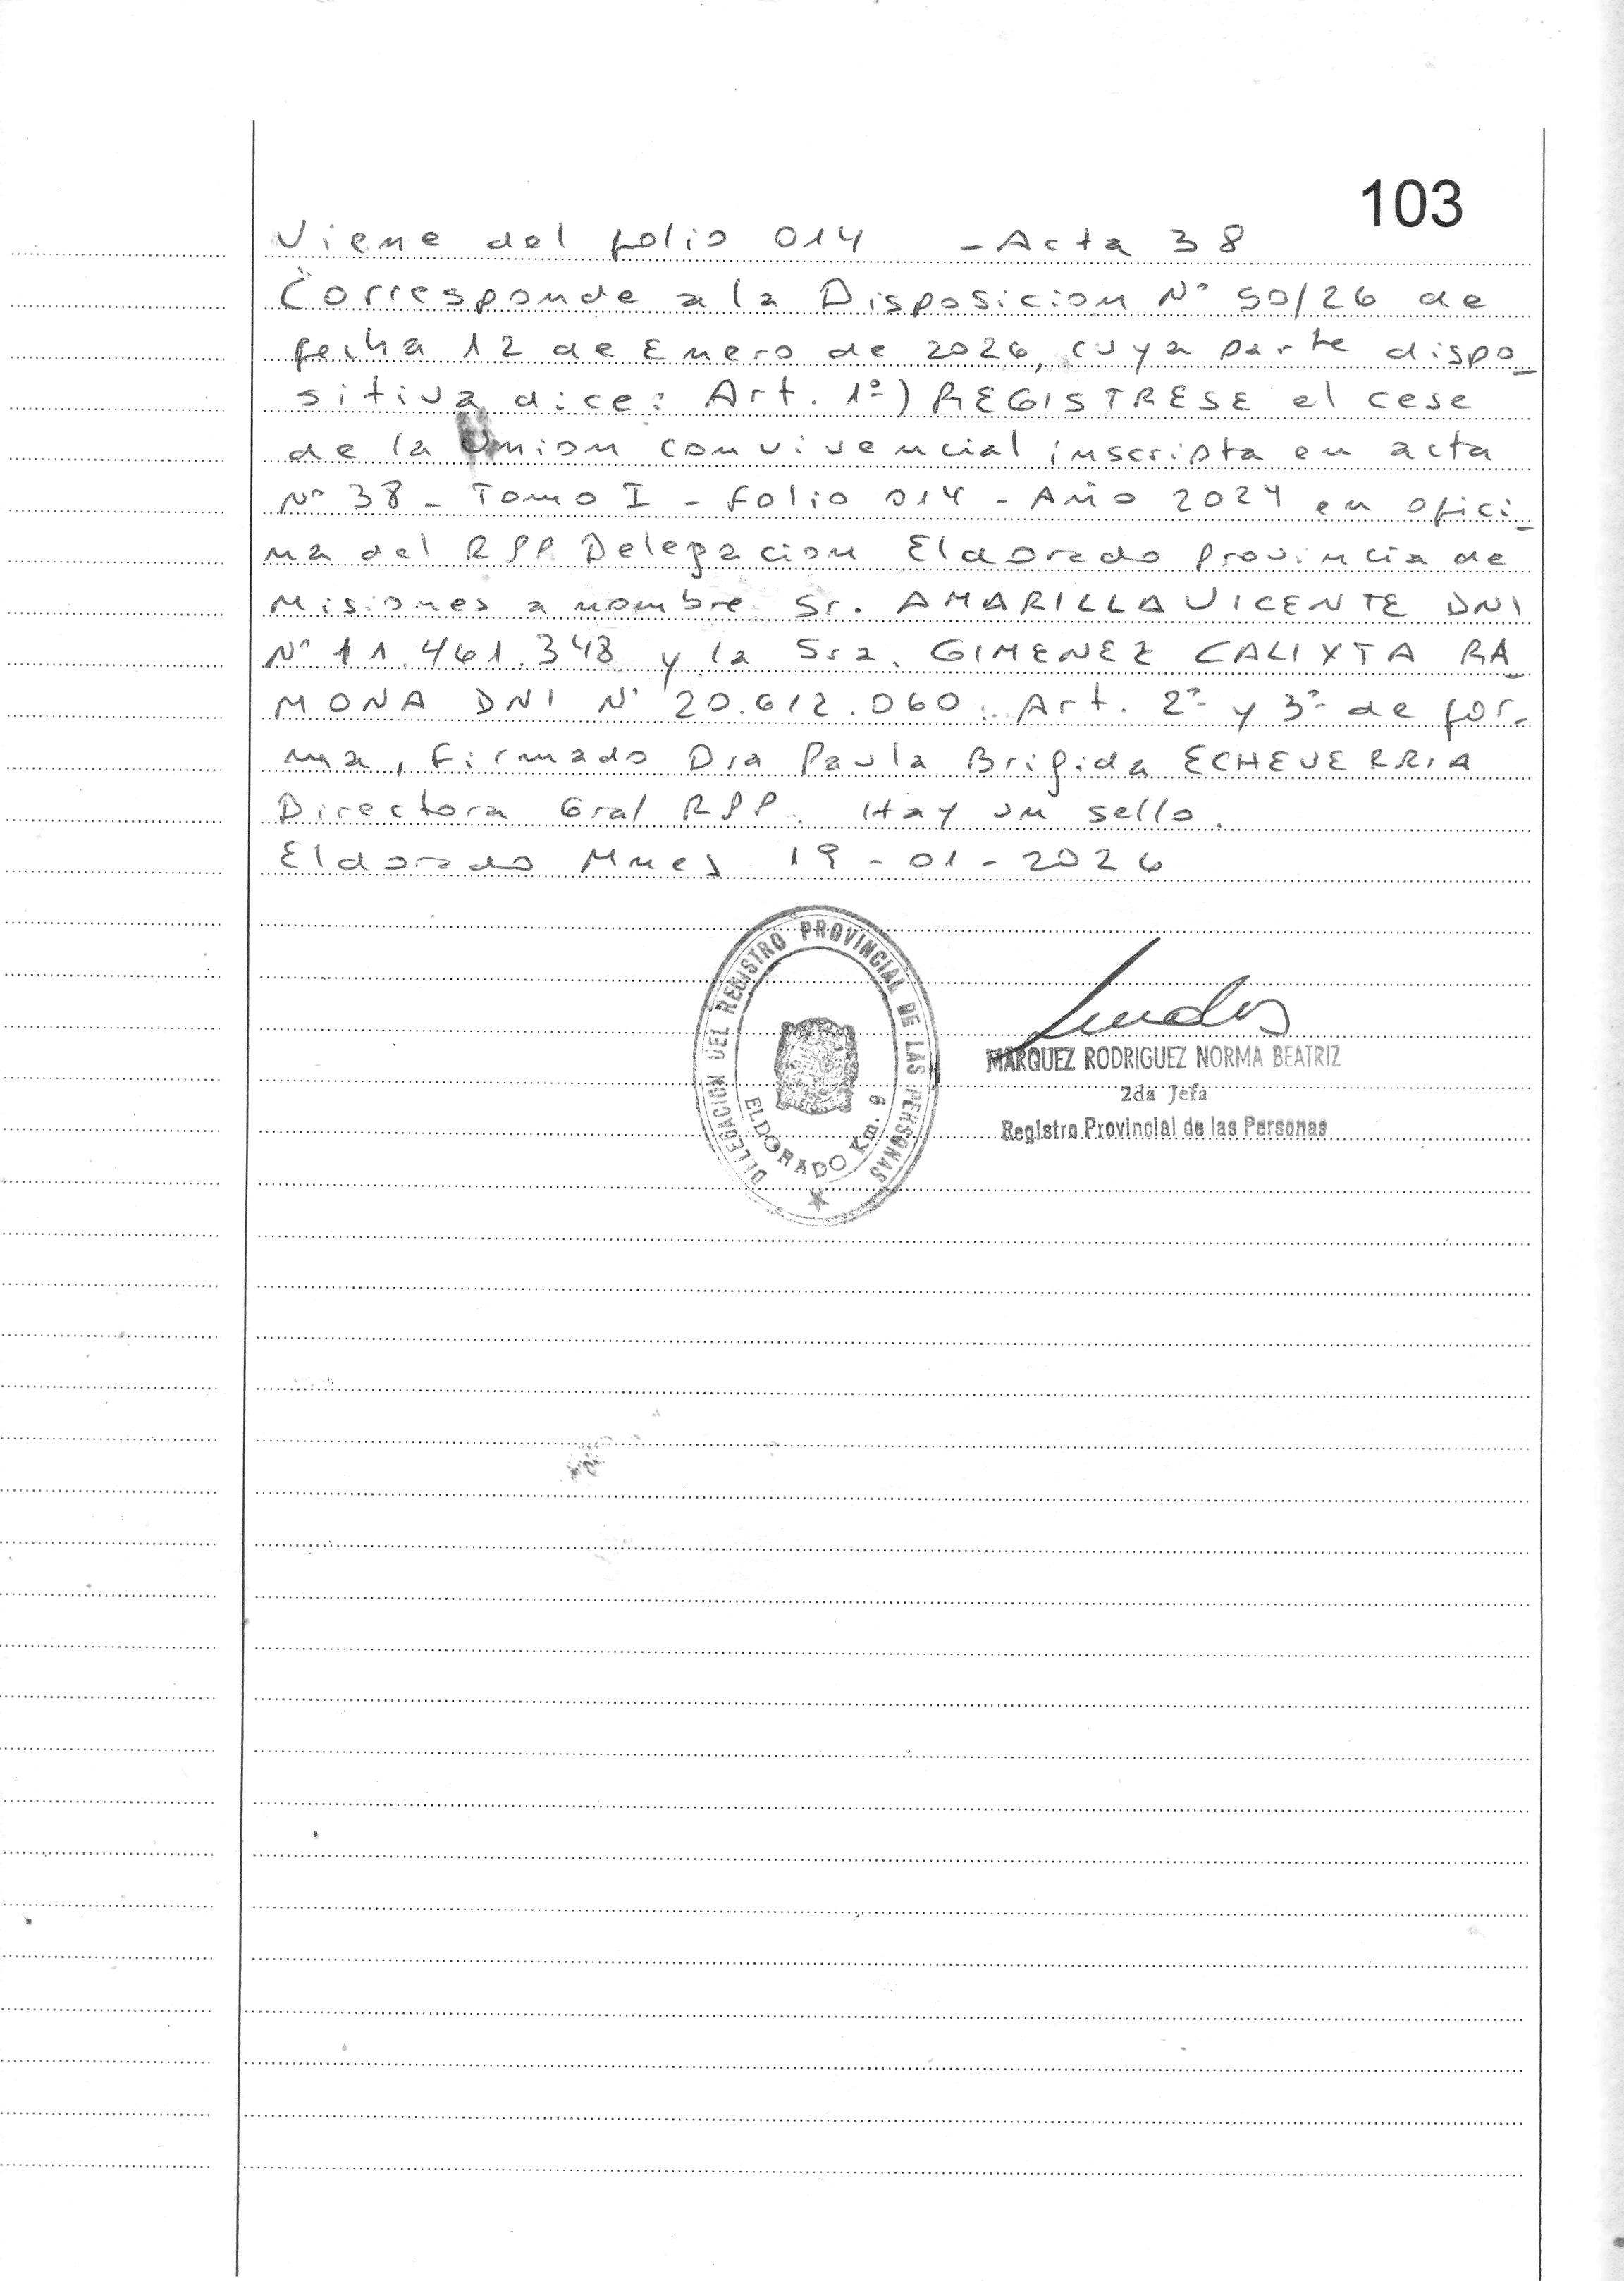 103
Viene del folio 014 - Acta 38
Corresponde a la Disposicion N° 50/26 de
fecha 12 de Enero de 2026, cuya parte dispo_
sitiva dice: Art. 1º) REGISTRESE el cese
de la Union convivencial inscripta en acta
N° 38 - Tomo I - Folio 014 - Año 2024 en ofici_
na del RPP Delegacion Eldorado Provincia de
Misiones a nombre Sr. AMARILLA VICENTE DNI
N° 11.461.348 y la Sra. GIMENEZ CALIXTA RA_
MONA DNI N° 20.612.060. Art. 2º y 3º de for-
ma, Firmado Dra Paula Brigida ECHEVERRIA
Directora Gral RPP. Hay un sello.
Eldorado Mnes 19-01-2026
DELEGACION DEL REGISTRO PROVINCIAL DE LAS PERSONAS
ELDORADO Km. 9
MARQUEZ RODRIGUEZ NORMA BEATRIZ
2da Jefa
Registro Provincial de las Personas